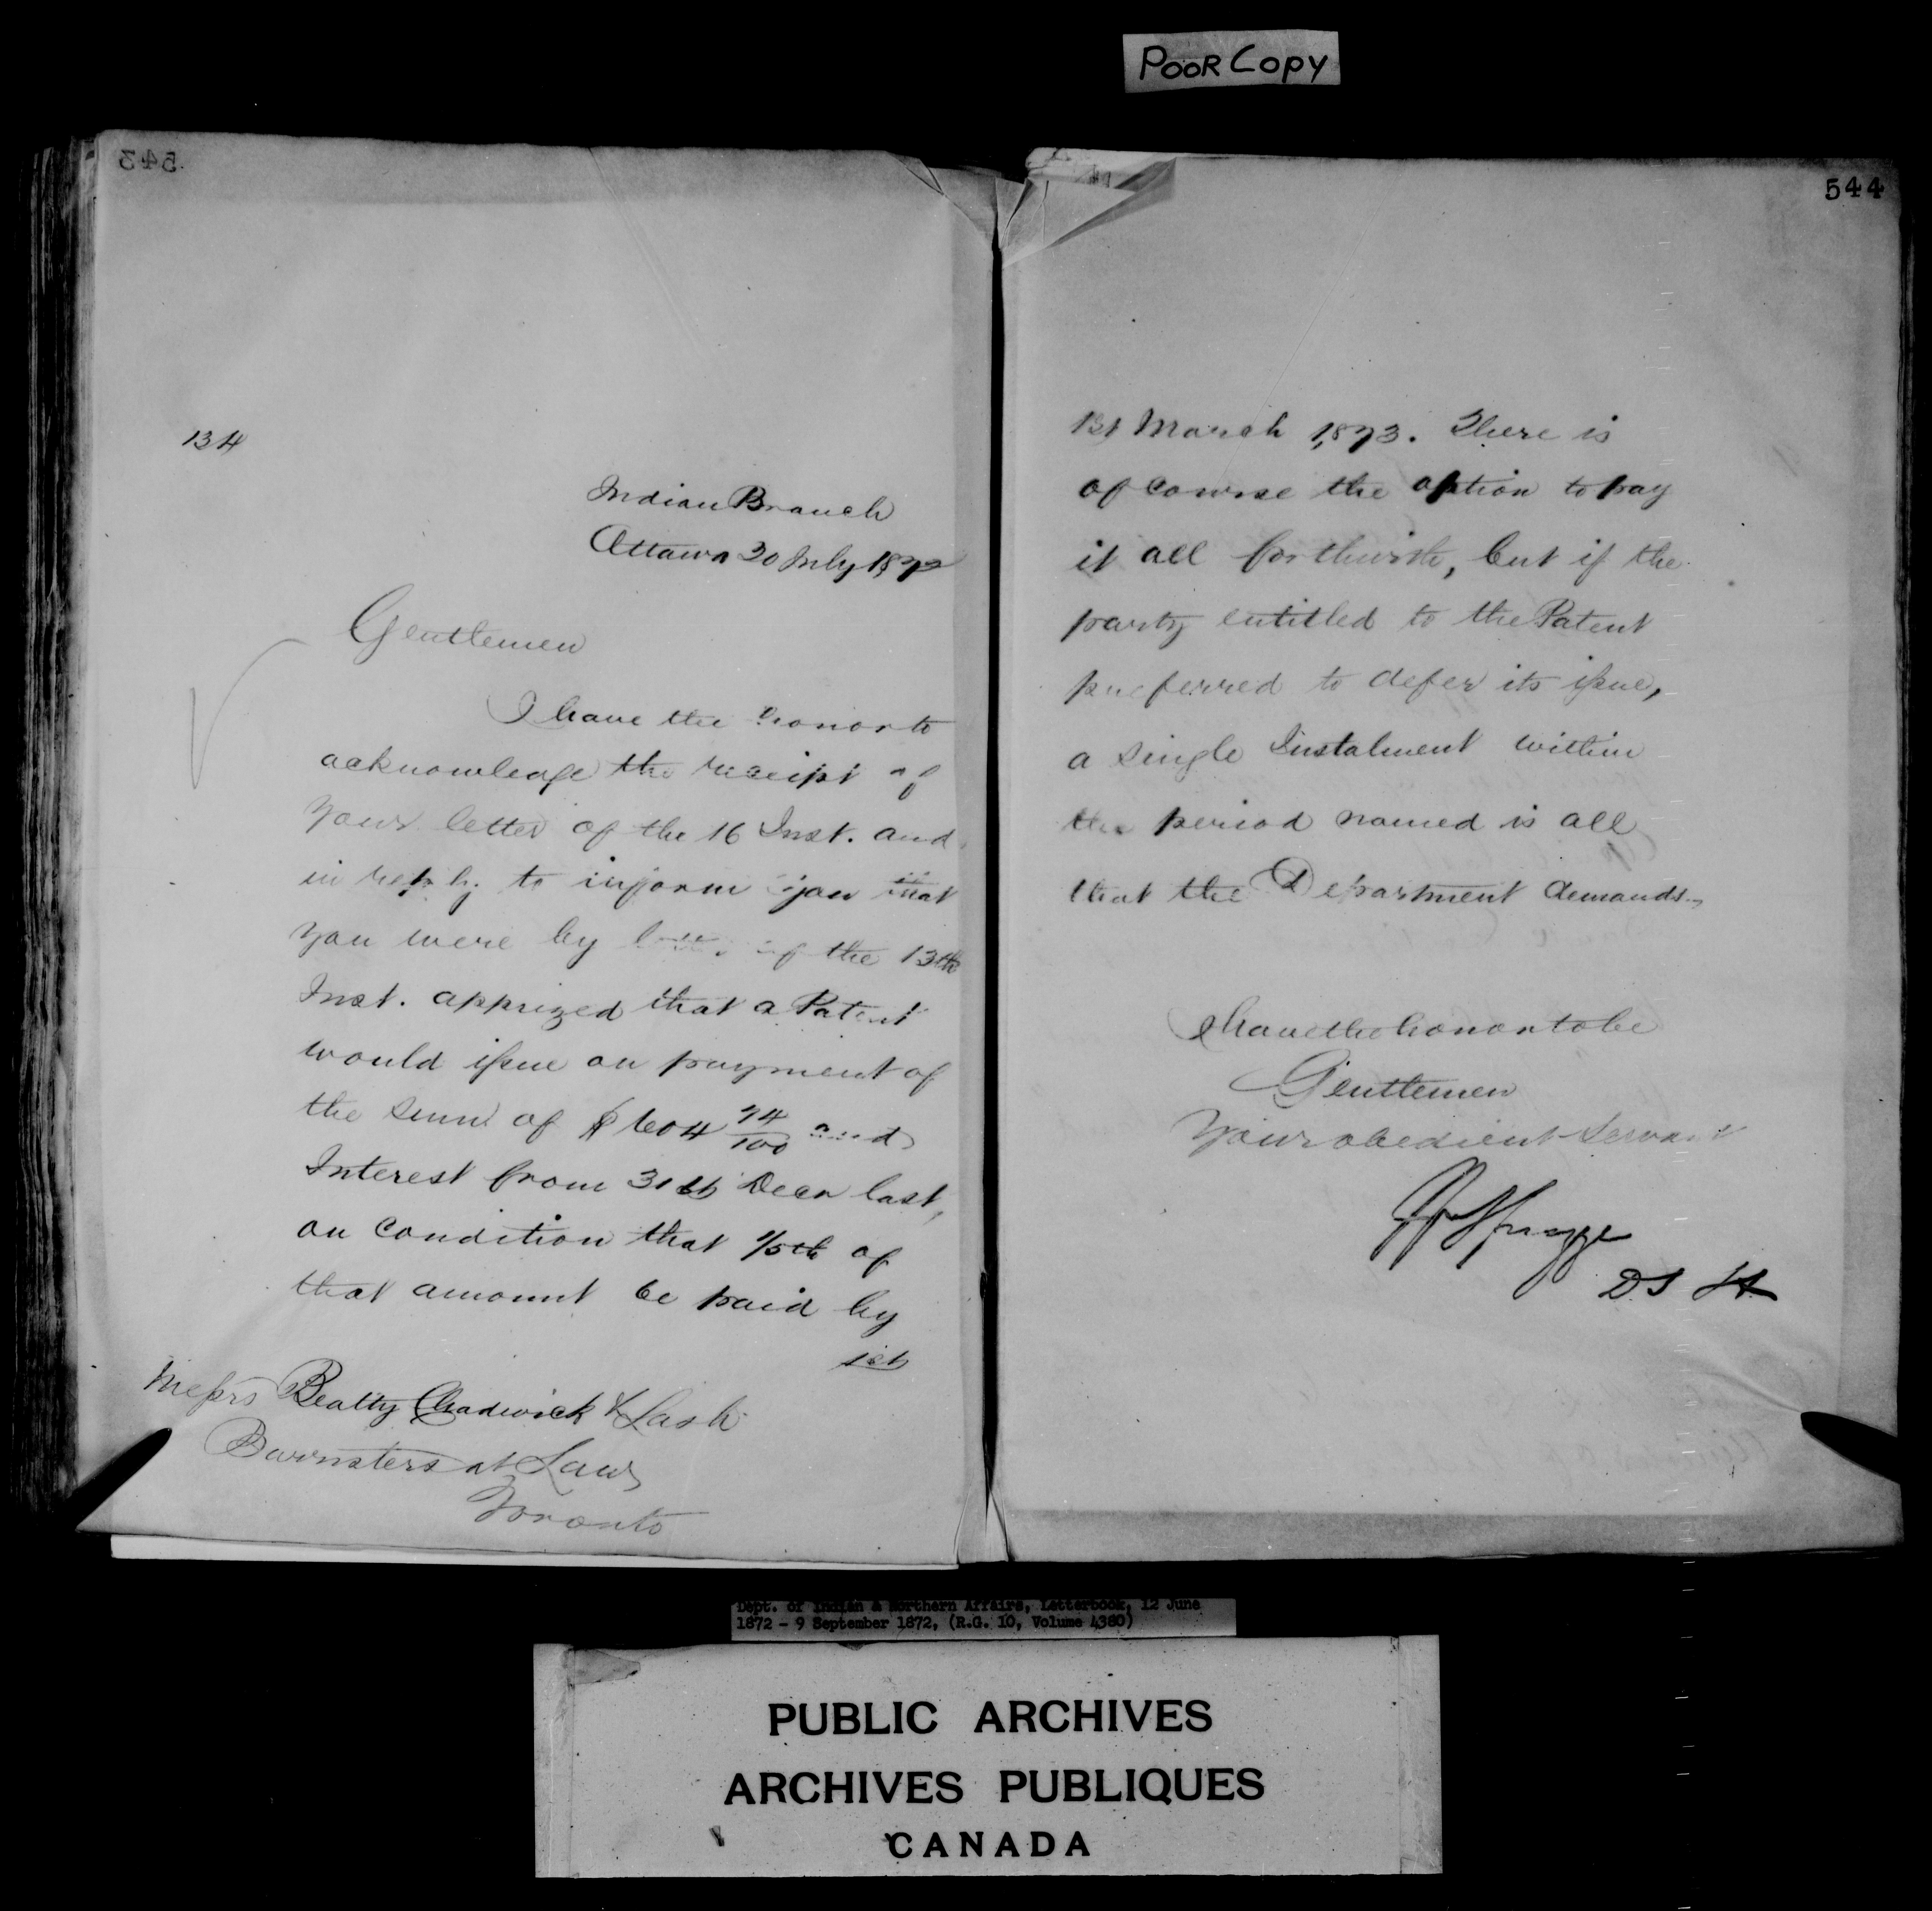 POOR COPY
543
134
Indian Branch
Ottawa 30 July 1872
Gentlemen
I have the honor to
acknowledge the receipt of
your letter of the 16 Inst. and
in reply to inform you that
you were by letter of the 13th
Inst. apprized that a Patent
would issue on payment of
the sum of $604 74/100 and
Interest from 31st Decr last,
on condition that 1/5th of
that amount be paid by
1st
Messrs Beatty Chadwick & Lash
Barristers at Law
Toronto
544
1st March 1873. There is
of course the option to pay
it all forthwith, but if the
party entitled to the Patent
preferred to defer its issue,
a single Instalment within
the period named is all
that the Department demands.
I have the honor to be
Gentlemen
Your obedient Servant
Spragge
DS
Dept. of Indian & Northern Affairs, Letterbook, 12 June
1872 - 9 September 1872, (R.G. 10, Volume 4380)
PUBLIC ARCHIVES
ARCHIVES PUBLIQUES
CANADA